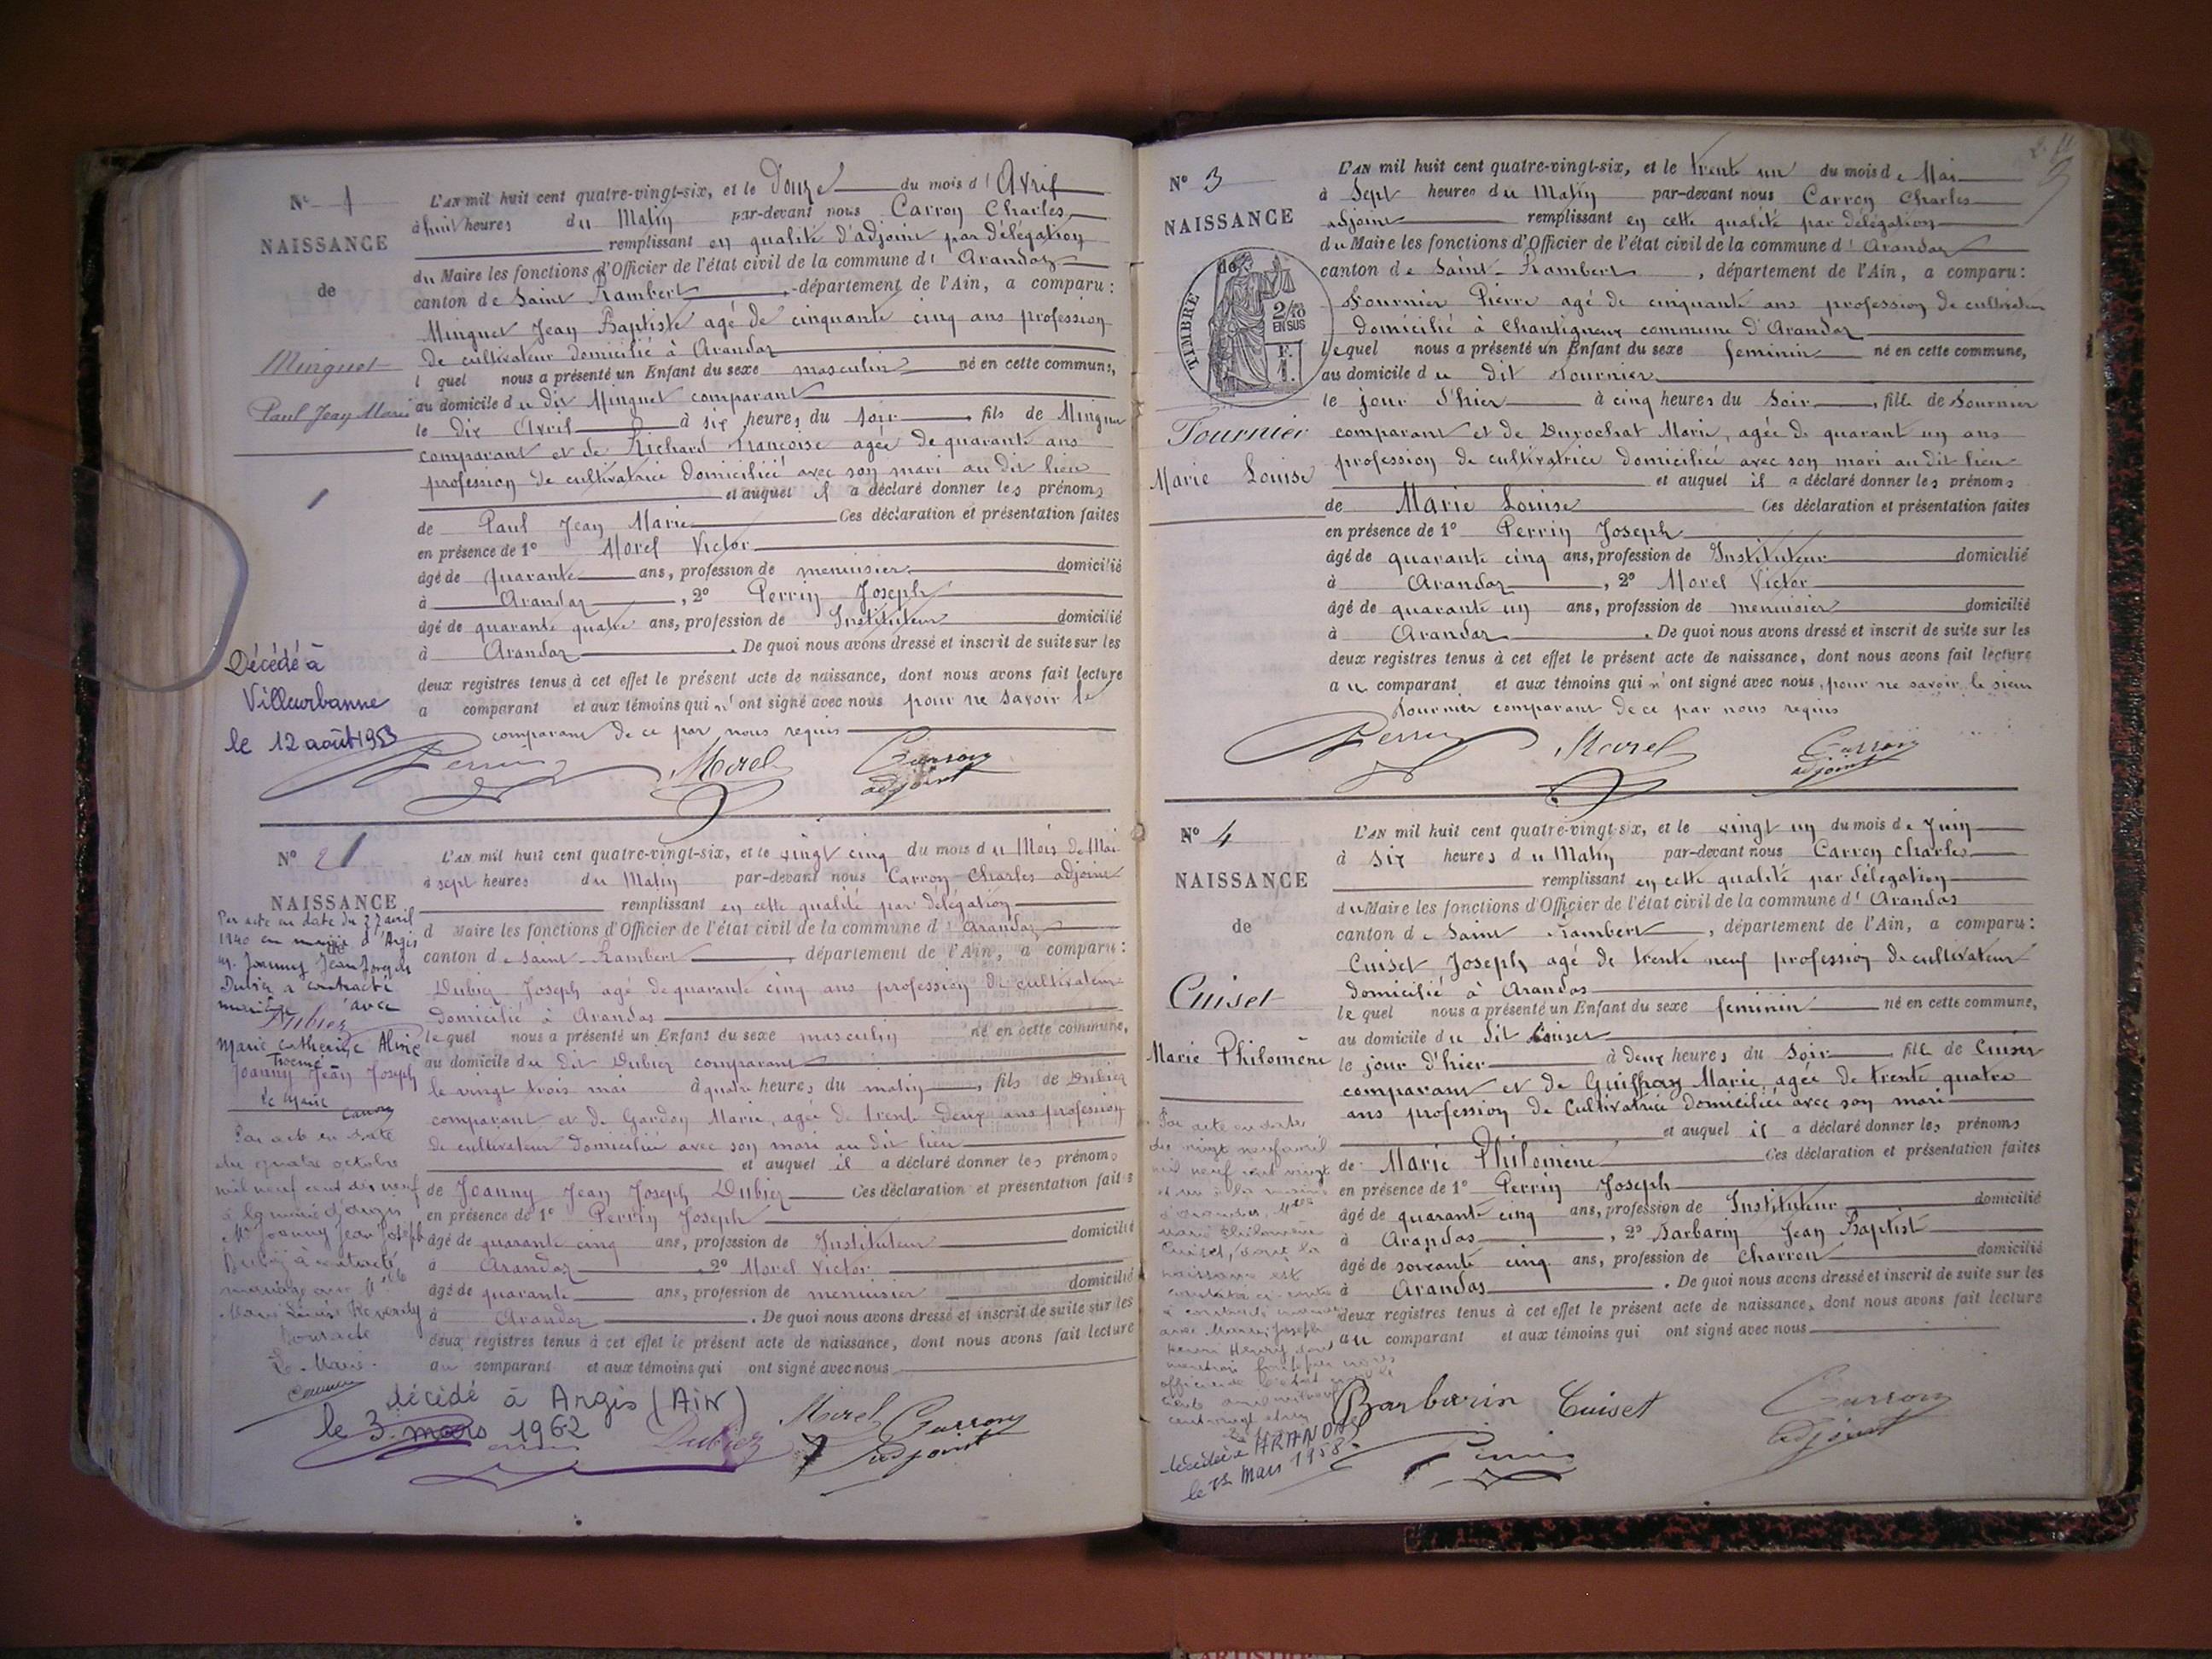 N° 1
NAISSANCE
de
Minguet
Paul Jean Marie
L'AN mil huit cent quatre-vingt-six, et le Douze du mois d'Avril
à huit heures du Matin par-devant nous Carron Charles
remplissant en qualité d'adjoint par délégation
du Maire les fonctions d'Officier de l'état civil de la commune d'Arandaz
canton de Saint Rambert, département de l'Ain, a comparu:
Minguet Jean Baptiste agé de cinquante cinq ans profession
de cultivateur domicilié à Arandaz
l quel nous a présenté un Enfant du sexe masculin né en cette commune,
au domicile du dit Minguet comparant
le dix Avril à six heures du soir, fils de Minguet
comparant et de Richard Françoise agée de quarante ans
profession de cultivatrice domiciliée avec son mari au dit lieu
et auquel il a déclaré donner les prénoms
de Paul Jean Marie Ces déclaration et présentation faites
en présence de 1° Morel Victor
âgé de quarante ans, profession de menuisier domicilié
à Arandaz, 2° Perrin Joseph
âgé de quarante quatre ans, profession de Instituteur domicilié
à Arandaz. De quoi nous avons dressé et inscrit de suite sur les
deux registres tenus à cet effet le présent acte de naissance, dont nous avons fait lecture
a comparant et aux témoins qui n'ont signé avec nous pour ne savoir le
comparant de ce par nous requis
Décédé à
Villeurbanne
le 12 août 1953
Perrin Morel Carron
adjoint
N° 2
NAISSANCE
de
Per acte en date du 27 avril
1940 en mairie d'Argis
M. Joanny Jean Joseph
Dubiez a contracté
mariage avec
Marie Catherine Aline
Dubiez
Joanny Jean Joseph
Le Maire
Carron
Par acte en date
du quatre octobre
mil neuf cent dix neuf
à la mairie d'Argis
Mr Joanny Jean Joseph
Dubiez à contracté
mariage avec Mlle
Marie Louise
Le Maire
L'AN mil huit cent quatre-vingt-six, et le vingt cinq du mois du Mois de Mai
à sept heures du Matin par-devant nous Carron Charles adjoint
remplissant en cette qualité par délégation
d Maire les fonctions d'Officier de l'état civil de la commune d'Arandaz
canton de Saint-Rambert, département de l'Ain, a comparu:
Dubiez Joseph agé de quarante cinq ans profession de cultivateur
domicilié à Arandas
lequel nous a présenté un Enfant du sexe masculin né en cette commune,
au domicile du dit Dubiez comparant
le vingt trois mai à quatre heures du matin, fils de Dubiez
comparant et de Gardon Marie, agée de trente deux ans profession
de cultivateur domiciliée avec son mari au dit lieu
et auquel il a déclaré donner les prénoms
de Joanny Jean Joseph Dubiez Ces déclaration et présentation faites
en présence de 1° Perrin Joseph
âgé de quarante cinq ans, profession de Instituteur domicilié
à Arandaz, 2° Morel Victor
âgé de quarante ans, profession de menuisier domicilié
à Arandaz. De quoi nous avons dressé et inscrit de suite sur les
deux registres tenus à cet effet le présent acte de naissance, dont nous avons fait lecture
au comparant et aux témoins qui ont signé avec nous
décédé à Argis (Ain)
le 3 mars 1962
Dubiez Morel Carron
adjoint
N° 3
NAISSANCE
de
TIMBRE
2/10
EN SUS
F.
1.
Fournier
Marie Louise
L'AN mil huit cent quatre-vingt-six, et le trente un du mois de Mai
à Sept heures du Matin par-devant nous Carron Charles
adjoint remplissant en cette qualité par délégation
du Maire les fonctions d'Officier de l'état civil de la commune d'Arandaz
canton de Saint-Rambert, département de l'Ain, a comparu:
Fournier Pierre agé de cinquante ans profession de cultivateur
domicilié à Chantigneux commune d'Arandaz
lequel nous a présenté un Enfant du sexe feminin né en cette commune,
au domicile du dit Fournier
le jour d'hier à cinq heures du Soir, fille de Fournier
comparant et de Durochat Marie, agée de quarant un ans
profession de cultivatrice domiciliée avec son mari au dit lieu
et auquel il a déclaré donner les prénoms
de Marie Louise Ces déclaration et présentation faites
en présence de 1° Perrin Joseph
âgé de quarante cinq ans, profession de Instituteur domicilié
à Arandaz, 2° Morel Victor
âgé de quarante un ans, profession de menuisier domicilié
à Arandaz. De quoi nous avons dressé et inscrit de suite sur les
deux registres tenus à cet effet le présent acte de naissance, dont nous avons fait lecture
au comparant et aux témoins qui n'ont signé avec nous, pour ne savoir le sieur
Fournier comparant de ce par nous requis
Perrin Morel Carron
adjoint
N° 4
NAISSANCE
de
Cuiset
Marie Philomène
Par acte en date
du vingt neuf avril
mil neuf cent vingt
et un à la mairie
d'Arandas, Mlle
Marie Philomène
Cuiset, dont la
naissance est
constatée ci-contre
à contracté mariage
avec
décédée à ARANDAS
le 12 mars 1958
L'AN mil huit cent quatre-vingt-six, et le vingt un du mois de Juin
à six heures du Matin par-devant nous Carron Charles
remplissant en cette qualité par délégation
du Maire les fonctions d'Officier de l'état civil de la commune d'Arandas
canton de Saint Rambert, département de l'Ain, a comparu:
Cuiset Joseph agé de trente neuf profession de cultivateur
domicilié à Arandas
lequel nous a présenté un Enfant du sexe feminin né en cette commune,
au domicile du dit Cuiset
le jour d'hier à deux heures du Soir, fille de Cuiset
comparant et de Guiffray Marie agée de trente quatre
ans profession de Cultivatrice domiciliée avec son mari
et auquel il a déclaré donner les prénoms
de Marie Philomène Ces déclaration et présentation faites
en présence de 1° Perrin Joseph
âgé de quarante cinq ans, profession de Instituteur domicilié
à Arandas, 2° Barbarin Jean Baptiste
âgé de soixante cinq ans, profession de Charron domicilié
à Arandas. De quoi nous avons dressé et inscrit de suite sur les
deux registres tenus à cet effet le présent acte de naissance, dont nous avons fait lecture
au comparant et aux témoins qui ont signé avec nous
Barbarin Cuiset Carron
adjoint
Perrin